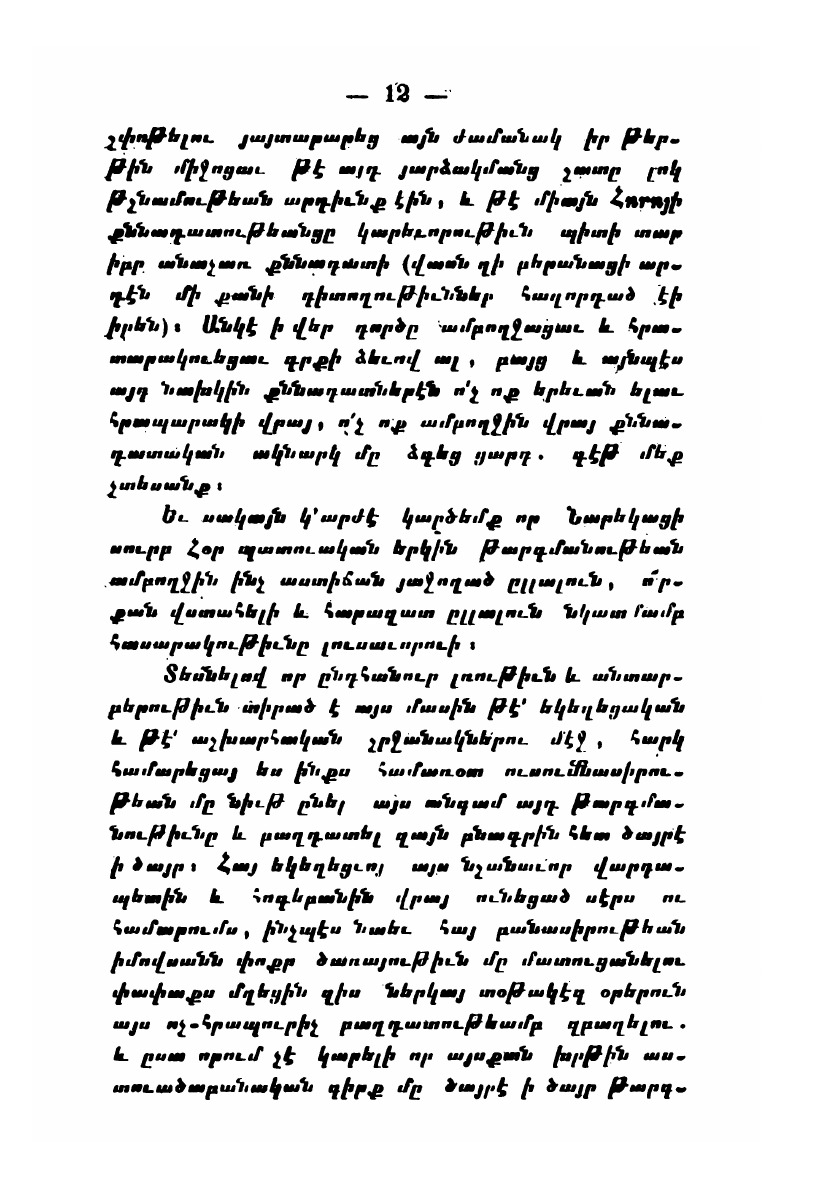 — 12 —
չփոթելու յայտարարեց այն ժամանակ իր թեր-
թին միջոցաւ թէ այդ յարձակմանց շատը լոկ
թշնամութեան արդիւնք էին, և թէ միայն Հոռոյի
քննադատութեանցը կարեւորութիւն պիտի տար
իբր անաչառ քննադատի (վասն զի բերանացի ար-
դէն մի քանի դիտողութիւններ հաղորդած էի
իրեն)։ Անկէ ի վեր գործը ամբողջացաւ և հրա-
տարակուեցաւ գրքի ձեւով ալ, բայց և այնպէս
այդ նախկին քննադատներէն ո՛չ ոք երեւան ելաւ
հրապարակի վրայ, ո՛չ ոք ամբողջին վրայ քննա-
դատական ակնարկ մը ձգեց ցարդ. գէթ մեք
չտեսանք։
Եւ սակայն կ՚արժէ կարծեմք որ Նարեկացի
սուրբ Հօր պատուական երկին թարգմանութեան
ամբողջին ինչ աստիճան յաջողած ըլլալուն, ո՞ր-
քան վստահելի և հարազատ ըլլալուն նկատմամբ
հասարակութիւնը լուսաւորուի։
Տեսնելով որ ընդհանուր լռութիւն և անտար-
բերութիւն տիրած է այս մասին թէ՛ եկեղեցական
և թէ՛ աշխարհական շրջանակներու մէջ, հարկ
համարեցայ ես ինքս համառօտ ուսումնասիրու-
թեան մը նիւթ ընել այս անգամ այդ թարգմա-
նութիւնը և բաղդատել զայն բնագրին հետ ծայրէ
ի ծայր։ Հայ եկեղեցւոյ այս նշանաւոր վարդա-
պետին և հոգեբանին վրայ ունեցած սէրս ու
համարումս, ինչպէս նաեւ հայ բանասիրութեան
իմովսանն փոքր ծառայութիւն մը մատուցանելու
փափաքս մղեցին զիս ներկայ տօթակէզ օրերուն
այս ոչ-հրապուրիչ բաղդատութեամբ զբաղելու.
և ըստ որում չէ կարելի որ այսքան խրթին աս-
տուածաբանական գիրք մը ծայրէ ի ծայր թարգ-